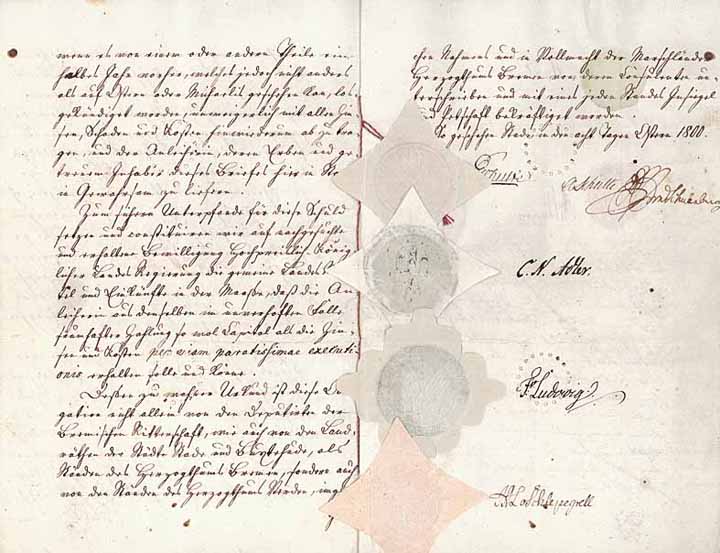 wenn es von einem oder andern Theile ein
halbes Jahr vorher, welches jedoch nicht anders
als auf Ostern oder Michaelis geschehen kan, los
gekündiget worden, unweigerlich mit allen Zin
sen, Schaden und Kosten hinwiederum ab zu tra
gen, und der Anleiherin, deren Erben und ge
treuen Inhaber dieses Briefes hier in
in Gewahrsam zu liefern.
Zum sichern Unterpfande für diese Schuld
setzen und constituiren wir auf nachgesuchte
und erhaltene Bewilligung Hochpreislicher Königl
licher Landes Regierung die gemeine Landes
und Einkünfte in der Maaße, daß die An
leiherin aus denselben im unverhofften Falle
Zahlung so wol Capital als die Zin
sen und Kosten per viam paratissimae executi-
onis erhalten solle und könne.
Dessen zu wahrer Urkund ist diese Ob
ligation nicht allein von den Deputirten der
Bremischen Ritterschaft, wie auch von den Land
räthen der Städte Stade und Buxtehude, als
Ständen des Herzogthums Bremen, sondern auch
von den Ständen des Herzogthums Verden, im
chen Nahmens und in Vollmacht der Marschländer
Herzogthums Bremen von deren Consulenten un
terschrieben und mit eines jeden Standes Insigel
und Petschaft bekräftiget worden.
So geschehen Stade in den acht Tagen Ostern 1800.
C. N. Adler.
F. Ludowig